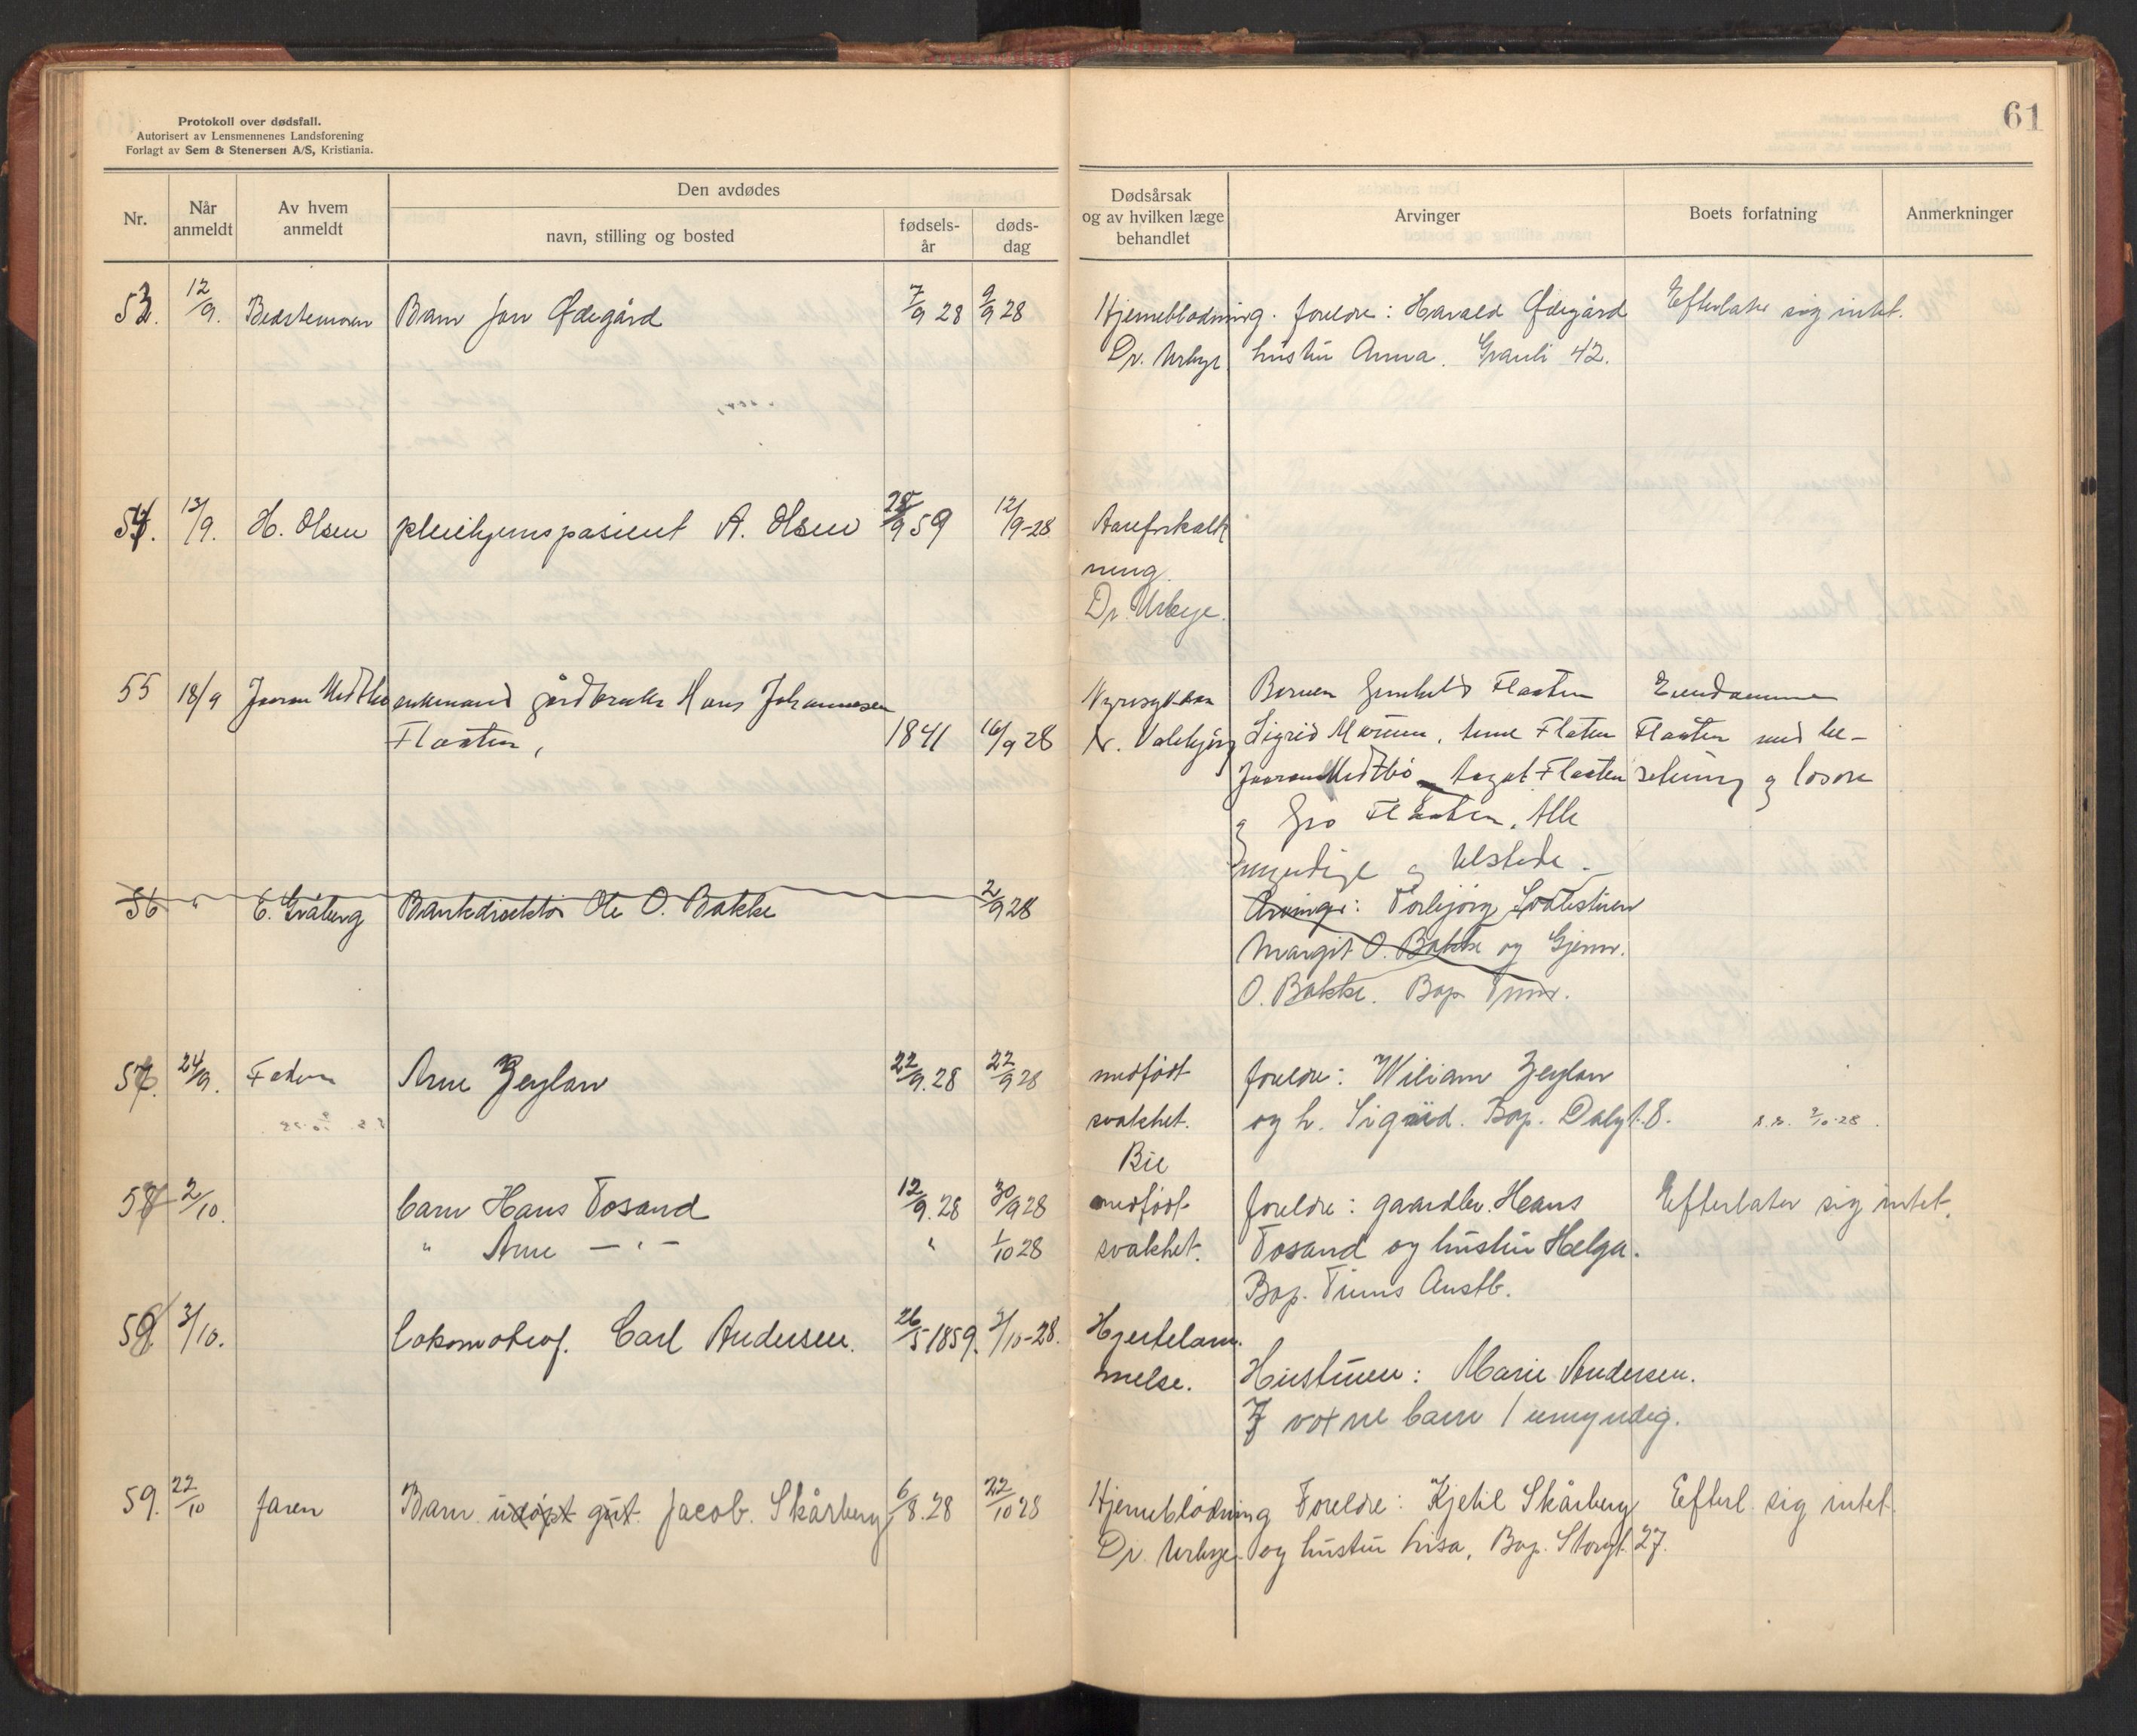 61
Protokoll over dødsfall.
Autorisert av Lensmennenes Landsforening
Forlagt av Sem & Stenersen A/S, Kristiania.
Nr. Når anmeldt Av hvem anmeldt Den avdødes Dødsårsak og av hvilken læge behandlet Arvinger Boets forfatning Anmerkninger
navn, stilling og bosted fødsels-år døds-dag
53. 12/9. Bestemoren Barn Jon Ødegård 7/9 28 9/9 28 Hjerneblødning. foreldre: Harald Ødegård Efterlater sig intet.
Dr. Urbye hustru Anna. Granli 42.
54. 13/9. H. Olsen pleiehjemspasient A. Olsen 28/9 59 12/9-28 Aareforkalk
ning.
Dr. Urbye.
55 18/9 Joron Midtbø enkemand gårdbruker Hans Johannesen Nyresykdom Barnen Gunhild Flaaten Eiendommen
Flaaten, 1841 16/9 28 Dr. Valebjørg Sigrid Flaten Flaaten med be-
Joron Midtbø Flaaten setning og løsøre
og Gro Flaaten. Alle
myndige og tilstede.
56 " E. Gråberg Bankdirektør Ole O. Bakke 2/9 28 Arvinger: Torbjørg
Margit O. Bakke og Gjerm.
O. Bakke. Bop. Tinn.
57. 24/9. Faderen Arne Zeylan 22/9. 28 22/9 28 medfødt foreldre: Wiliam Zeylan
svakhet. og h. Sigrid. Bop. Dalgt. 8. s.s. 2/10-28.
Bie
58 2/10. barn Hans Tosand 12/9. 28 30/9 28 medfødt foreldre: gaardbr. Hans Efterlater sig intet.
" Arne — " — " 1/10 28 svakhet. Tosand og hustru Helga.
Bop. Tinns Austb.
59. 3/10. lokomotivf. Carl Andersen. 26/5 1859. 2/10-28. Hjertelam
melse. Hustruen: Marie Andersen.
7 voxne barn 1 umyndig.
59. 22/10 faren Barn udøpt gut. Jacob. Skårberg 6/8. 28 22/10 28 Hjerneblødning Foreldre: Kjetil Skårberg Efterl. sig intet.
Dr. Urbye. og hustru Lisa, Bop. Storgt. 27.